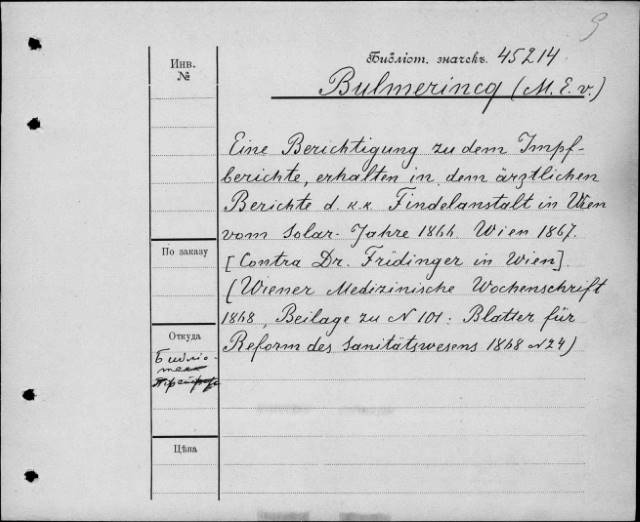 Библіот. значекъ. 45214
Bulmerincq (M. E. v.)
Инв.
№
Eine Berichtigung zu dem Impf-
berichte, erhalten in dem ärztlichen
Berichte d. k. k. Findelanstalt in Wien
vom Solar-Jahre 1866. Wien 1867.
[Contra Dr. Fridinger in Wien].
(Wiener Medizinische Wochenschrift
1868, Beilage zu N 101: Blatter für
Reform des Sanitätswesens 1868 N 24)
По заказу
Откуда
Библіо-
тека
Цѣна